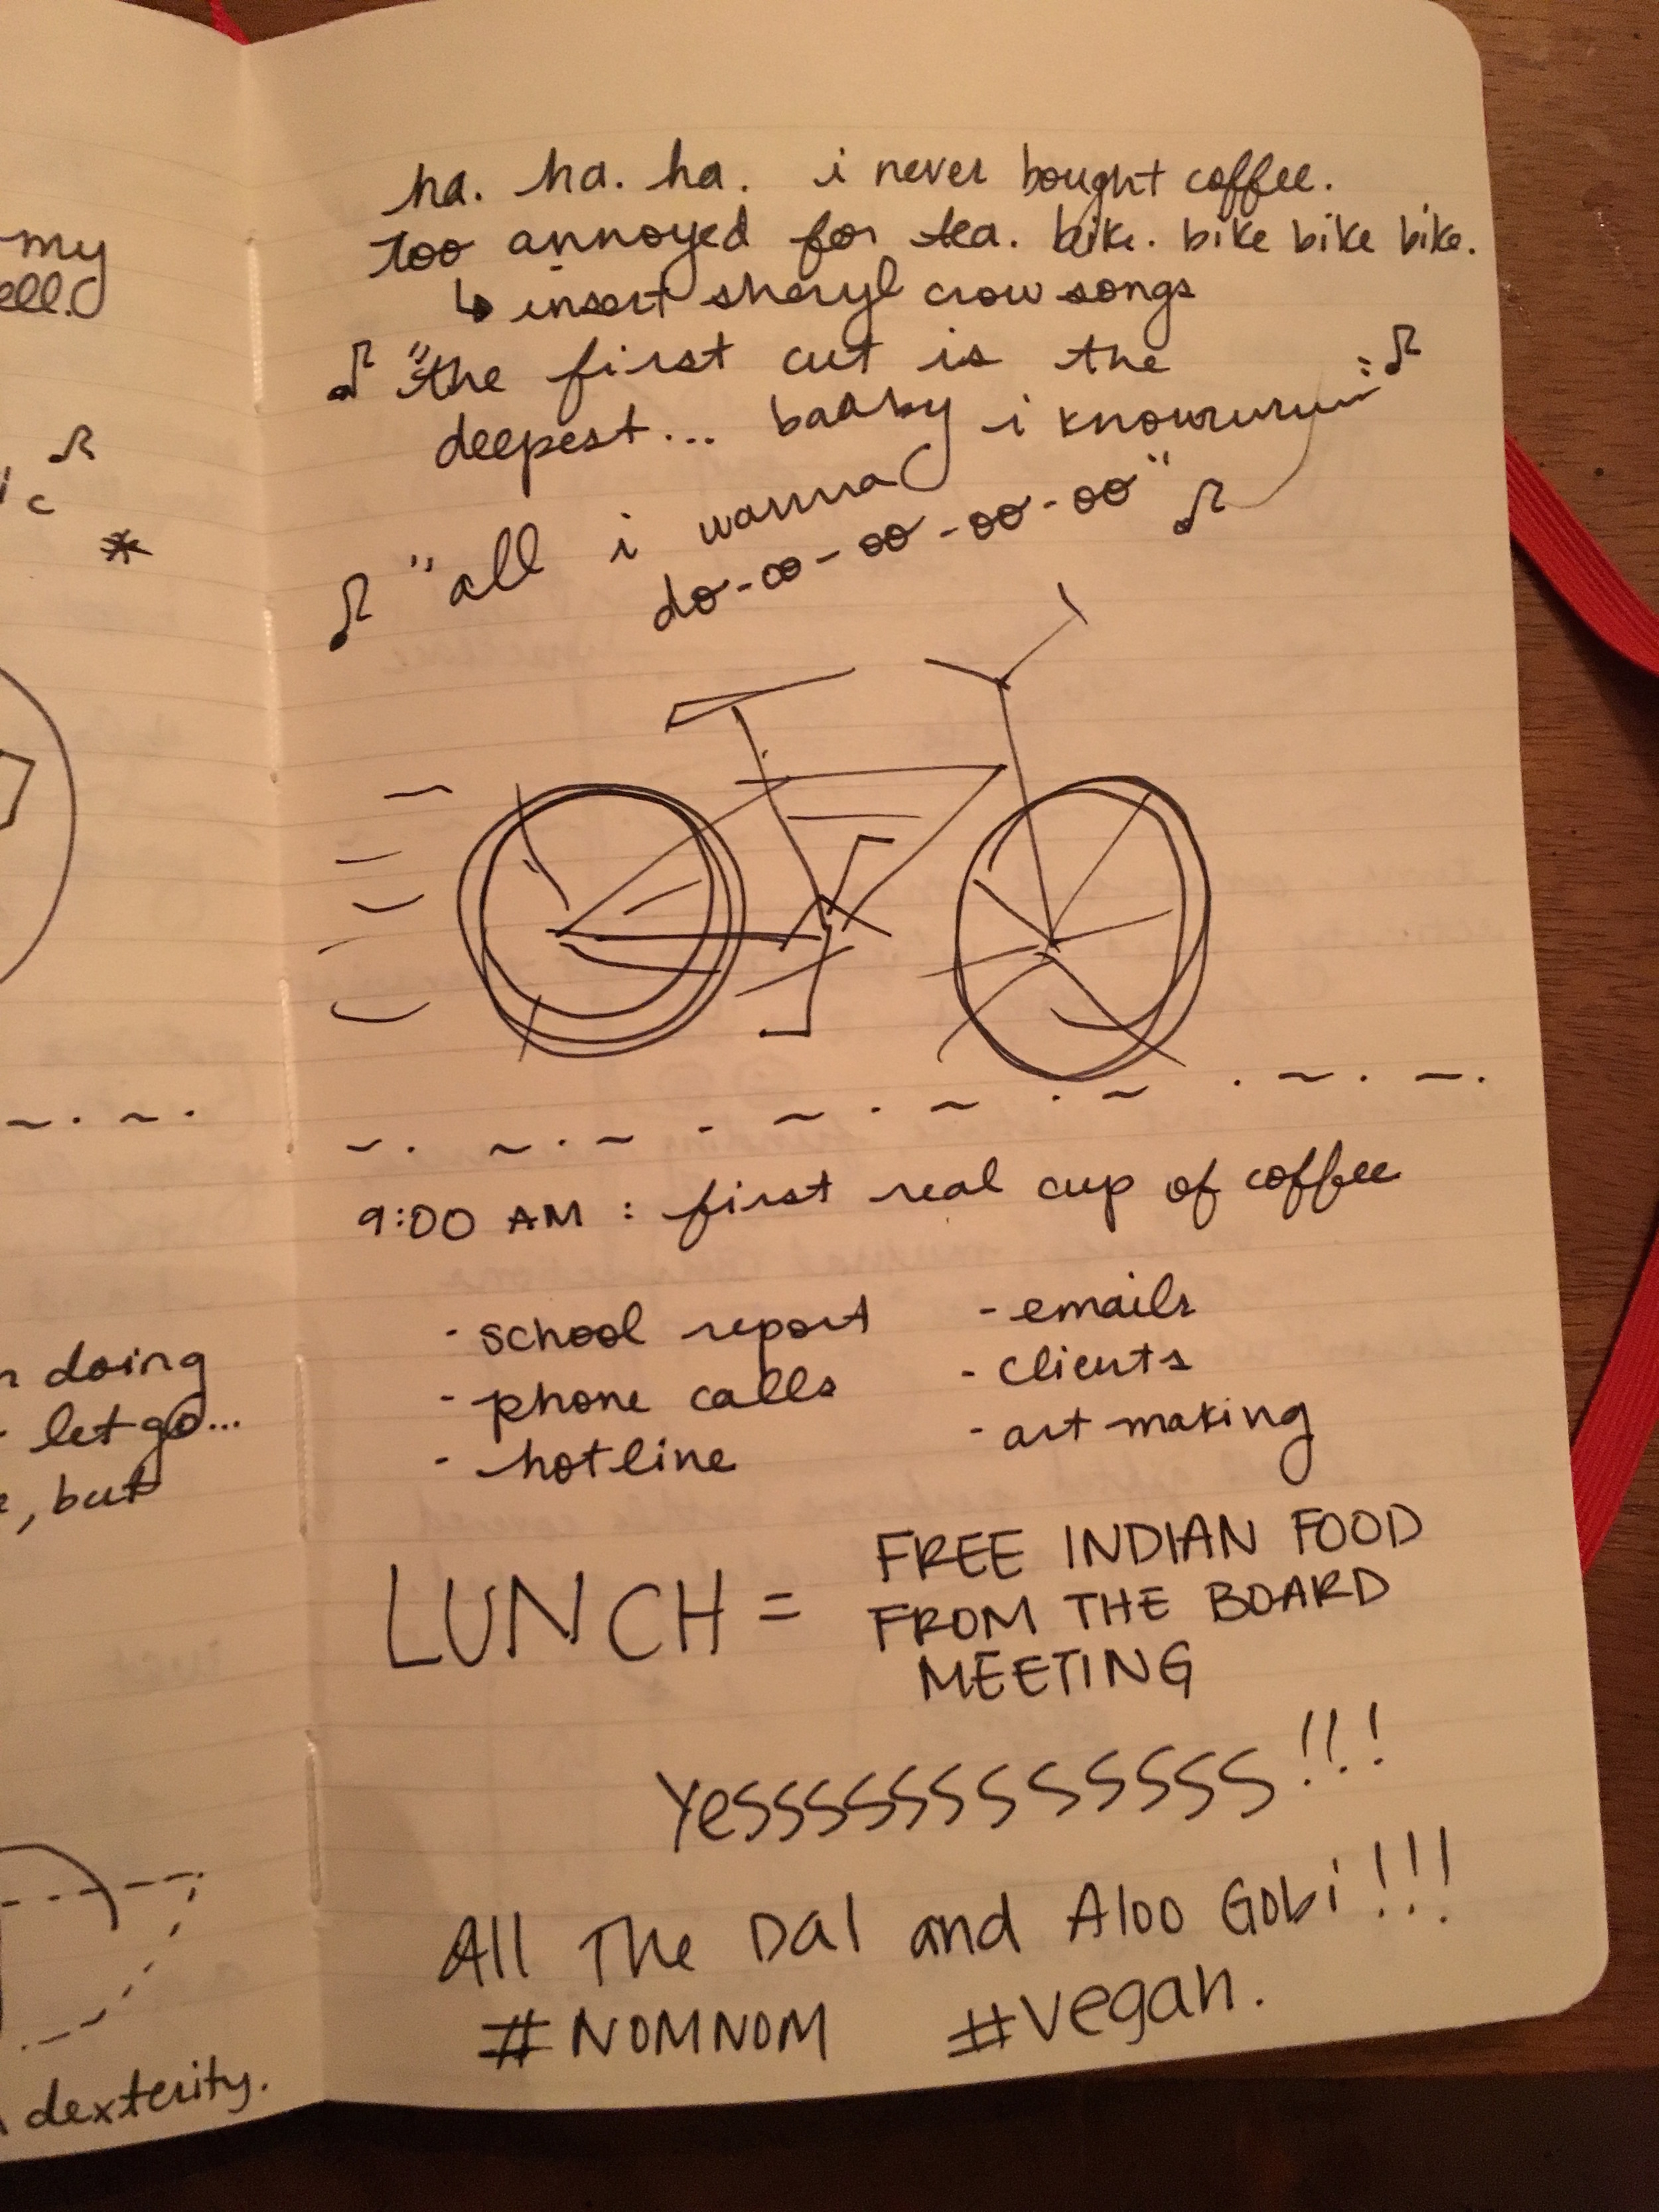 my
ell.
c
*
n doing
let go...
, but
dexterity.
ha. ha. ha. i never bought coffee.
too annoyed for tea. bike. bike bike bike.
↳ insert sheryl crow songs
♫ "the first cut is the
deepest... baaby i knowwwww" ♫
♫ "all i wanna
do-oo-oo-oo-oo" ♫
9:00 AM : first real cup of coffee
- school report
- phone calls
- hotline
- emails
- clients
- art making
LUNCH =
FREE INDIAN FOOD
FROM THE BOARD
MEETING
Yesssssssssssss!!!
All The Dal and Aloo Gobi!!!
#NOMNOM #vegan.